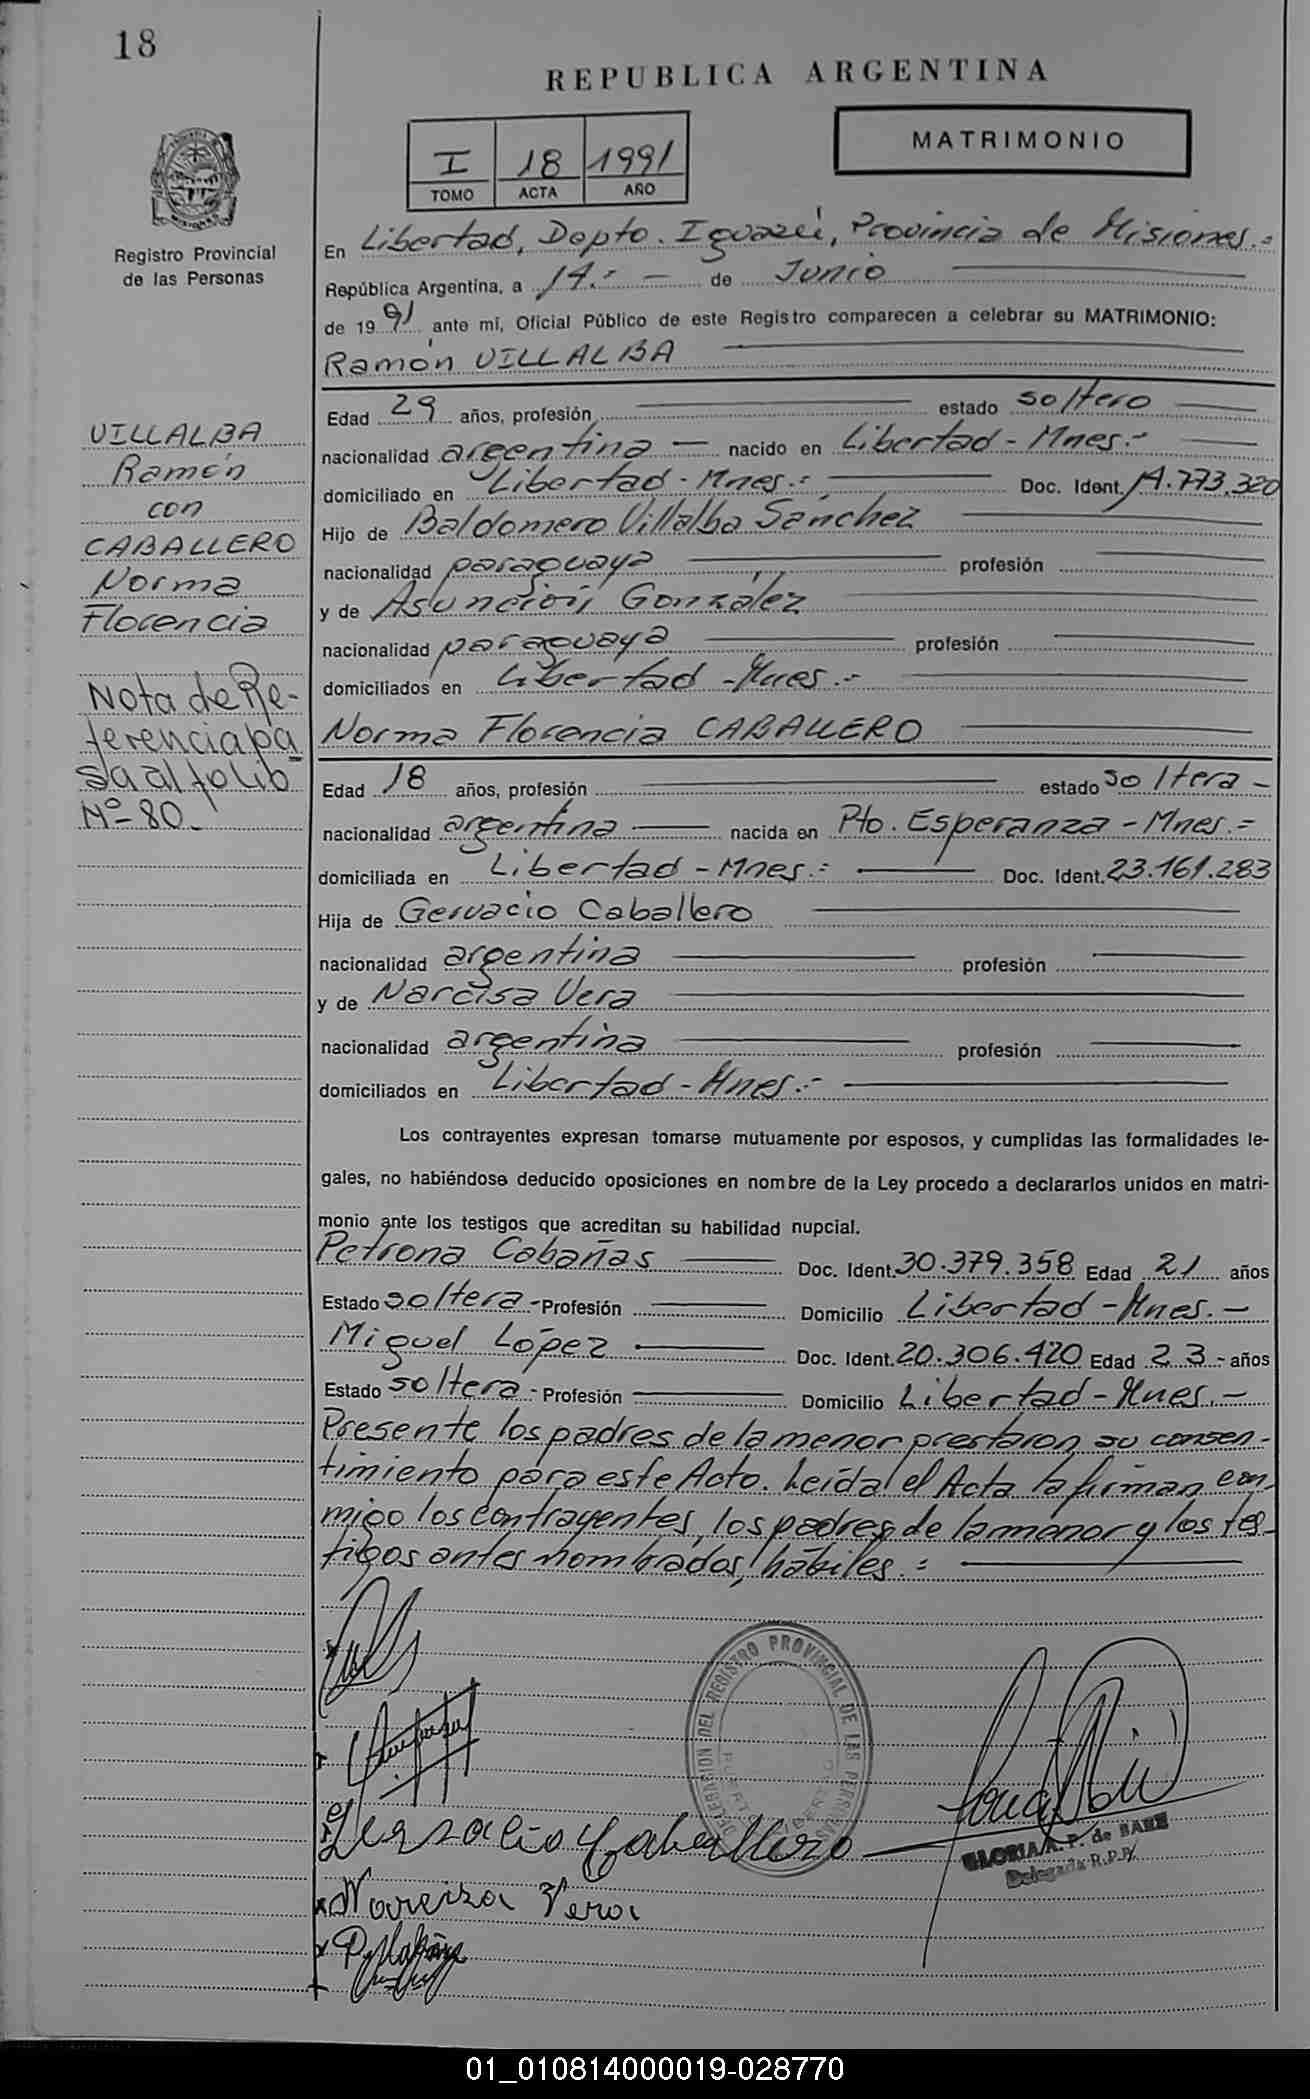 18
REPUBLICA ARGENTINA
I 18 1991
TOMO ACTA AÑO
MATRIMONIO
Registro Provincial
de las Personas
En Libertad, Depto. Iguazú, Provincia de Misiones.=
República Argentina, a 14.- — de Junio
de 1991 ante mí, Oficial Público de este Registro comparecen a celebrar su MATRIMONIO:
Ramón VILLALBA
Edad 29 años, profesión estado soltero
nacionalidad argentina — nacido en Libertad - Mnes.-
domiciliado en Libertad - Mnes.= Doc. Ident. 14.773.320
Hijo de Baldomero Villalba Sánchez
nacionalidad paraguaya profesión
y de Asunción González
nacionalidad paraguaya profesión
domiciliados en Libertad - Mnes.-
Norma Florencia CABALLERO
Edad 18 años, profesión estado soltera -
nacionalidad argentina nacida en Pto. Esperanza - Mnes.=
domiciliada en Libertad - Mnes.= Doc. Ident. 23.161.283
Hija de Gervacio Caballero
nacionalidad argentina profesión
y de Narcisa Vera
nacionalidad argentina profesión
domiciliados en Libertad - Mnes.-
Los contrayentes expresan tomarse mutuamente por esposos, y cumplidas las formalidades le-
gales, no habiéndose deducido oposiciones en nombre de la Ley procedo a declararlos unidos en matri-
monio ante los testigos que acreditan su habilidad nupcial.
Petrona Cabañas Doc. Ident. 30.379.358 Edad 21 años
Estado soltera - Profesión Domicilio Libertad - Mnes. -
Miguel López Doc. Ident. 20.306.420 Edad 23 - años
Estado soltera - Profesión Domicilio Libertad - Mnes. -
Presente los padres de la menor prestaron su consen-
timiento para este Acto. Leída el Acta la firman con-
migo los contrayentes, los padres de la menor y los tes-
tigos antes nombrados, hábiles.=
VILLALBA
Ramón
con
CABALLERO
Norma
Florencia
Nota de Re-
ferencia pa
sa al folio
Nº 80.-
DELEGACION DEL REGISTRO PROVINCIAL DE LAS PERSONAS
PUERTO LIBERTAD
Gersacio Caballero
Narciza Vera
GLORIA A. P. de BAEZ
Delegada R.P.P.
01_010814000019-028770